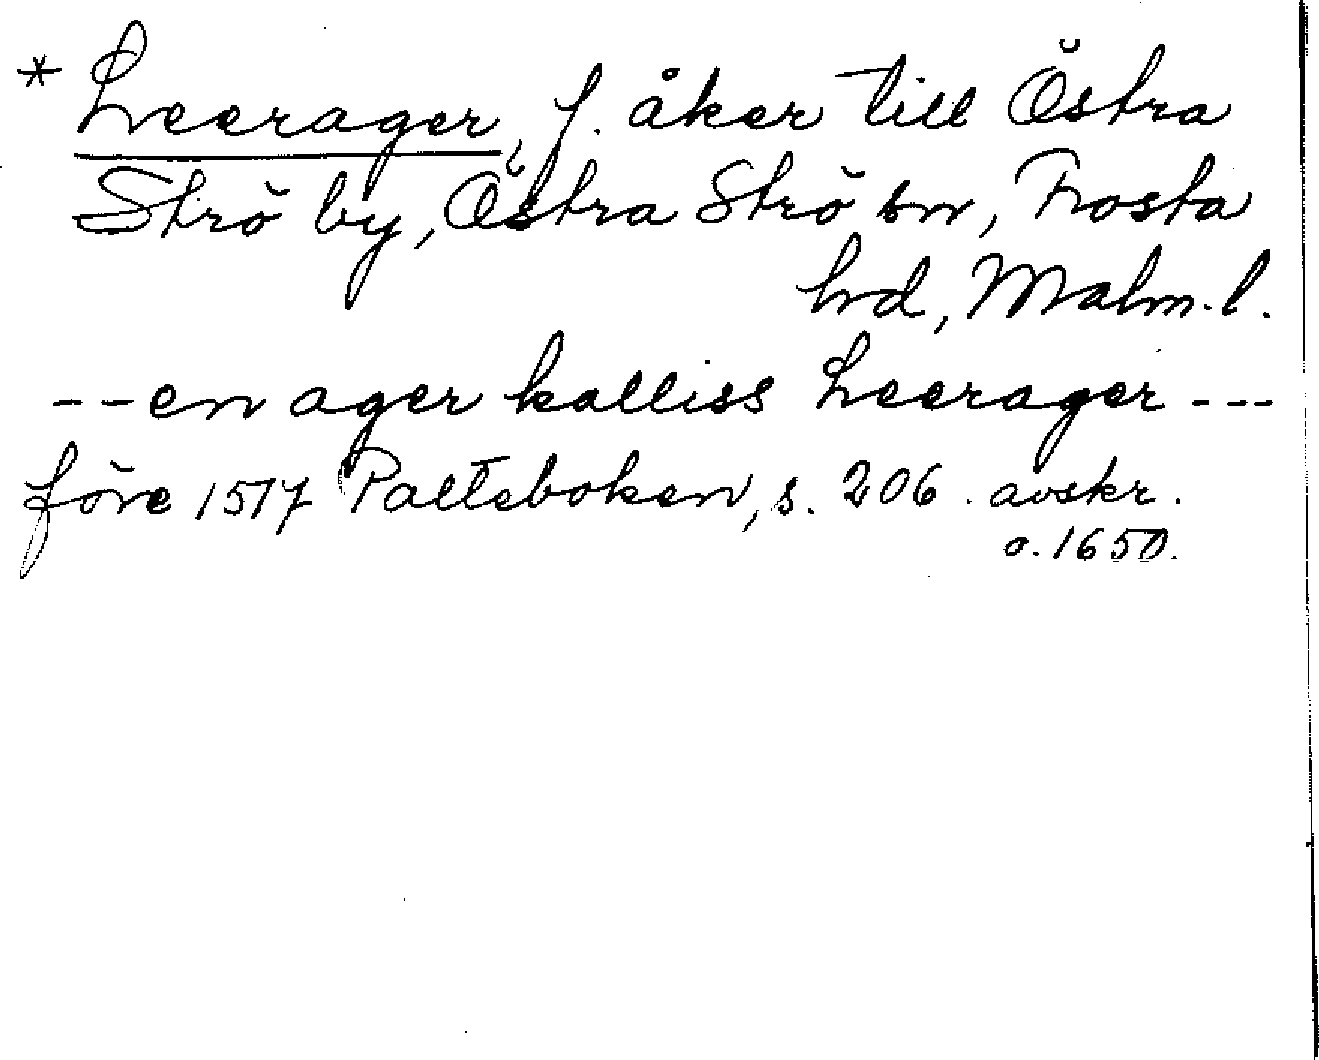 * Leerager, f. åker till Östra
Strö by, Östra Strö sn, Frosta
hd, Malm. l.
-- en ager kalliss Leerager ---
före 1517 Palteboken, s. 206. avskr.
o. 1650.